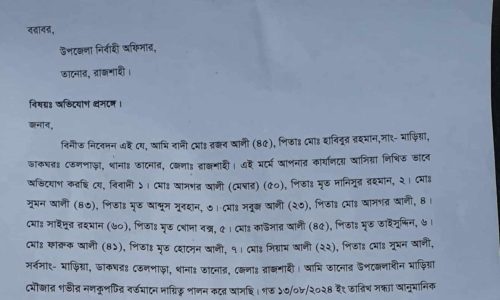 বরাবর,
উপজেলা নির্বাহী অফিসার,
তানোর, রাজশাহী।
বিষয়ঃ অভিযোগ প্রসঙ্গে।
জনাব,
বিনীত নিবেদন এই যে, আমি বাদী মোঃ রজব আলী (৪৫), পিতাঃ মোঃ হাবিবুর রহমান,সাং- মাড়িয়া,
ডাকঘরঃ তেলপাড়া, থানাঃ তানোর, জেলাঃ রাজশাহী। এই মর্মে আপনার কার্যালয়ে আসিয়া লিখিত ভাবে
অভিযোগ করছি যে, বিবাদী ১। মোঃ আসগর আলী (মেম্বার) (৫০), পিতাঃ মৃত দানিসুর রহমান, ২। মোঃ
সুমন আলী (৪৩), পিতাঃ মৃত আব্দুস সুবহান, ৩। মোঃ সবুজ আলী (২৩), পিতাঃ মোঃ আসগর আলী, ৪।
মোঃ সাইদুর রহমান (৬০), পিতাঃ মৃত খোদা বক্স, ৫। মোঃ কাউসার আলী (৪৫), পিতাঃ মৃত তাইসুদ্দিন, ৬।
মোঃ ফারুক আলী (৪১), পিতাঃ মৃত হোসেন আলী, ৭। মোঃ সিয়াম আলী (২২), পিতাঃ মোঃ সুমন আলী,
সর্বসাং- মাড়িয়া, ডাকঘরঃ তেলপাড়া, থানাঃ তানোর, জেলাঃ রাজশাহী। আমি তানোর উপজেলাধীন মাড়িয়া
মৌজার গভীর নলকুপটির বর্তমানে দায়িত্ব পালন করে আসছি। গত ১৩/০৮/২০২৪ ইং তারিখ সন্ধ্যা আনুমানিক